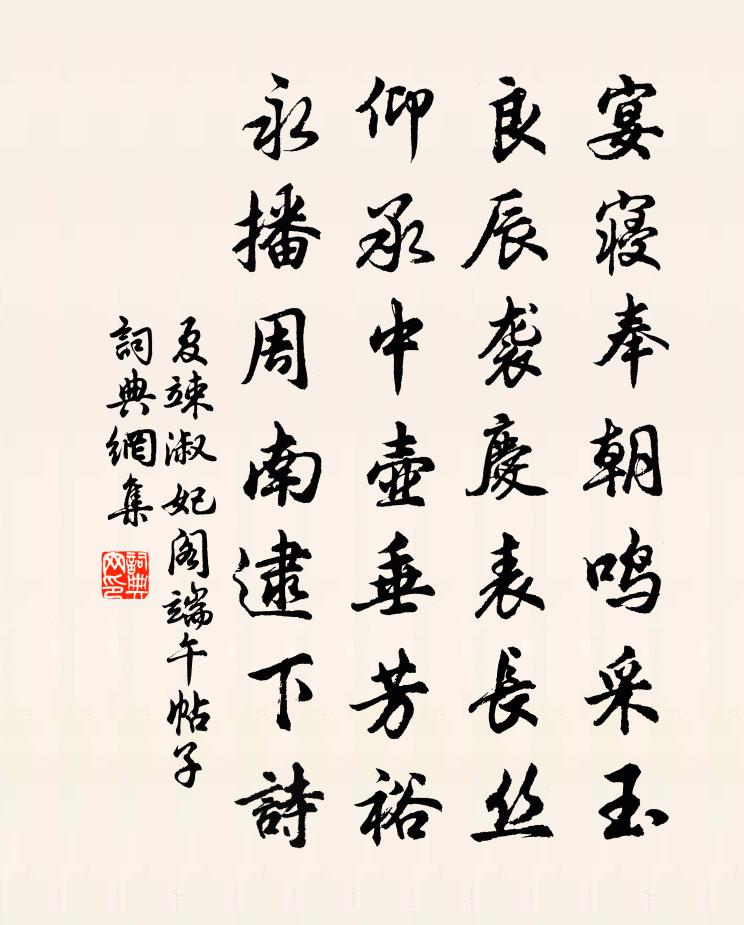 宴寝奉朝鸣采玉
良辰袭慶表長丝
仰承中壺垂芳裕
永播周南逮下詩
夏竦淑妃阁端午帖子
詞典網集
詞典网印